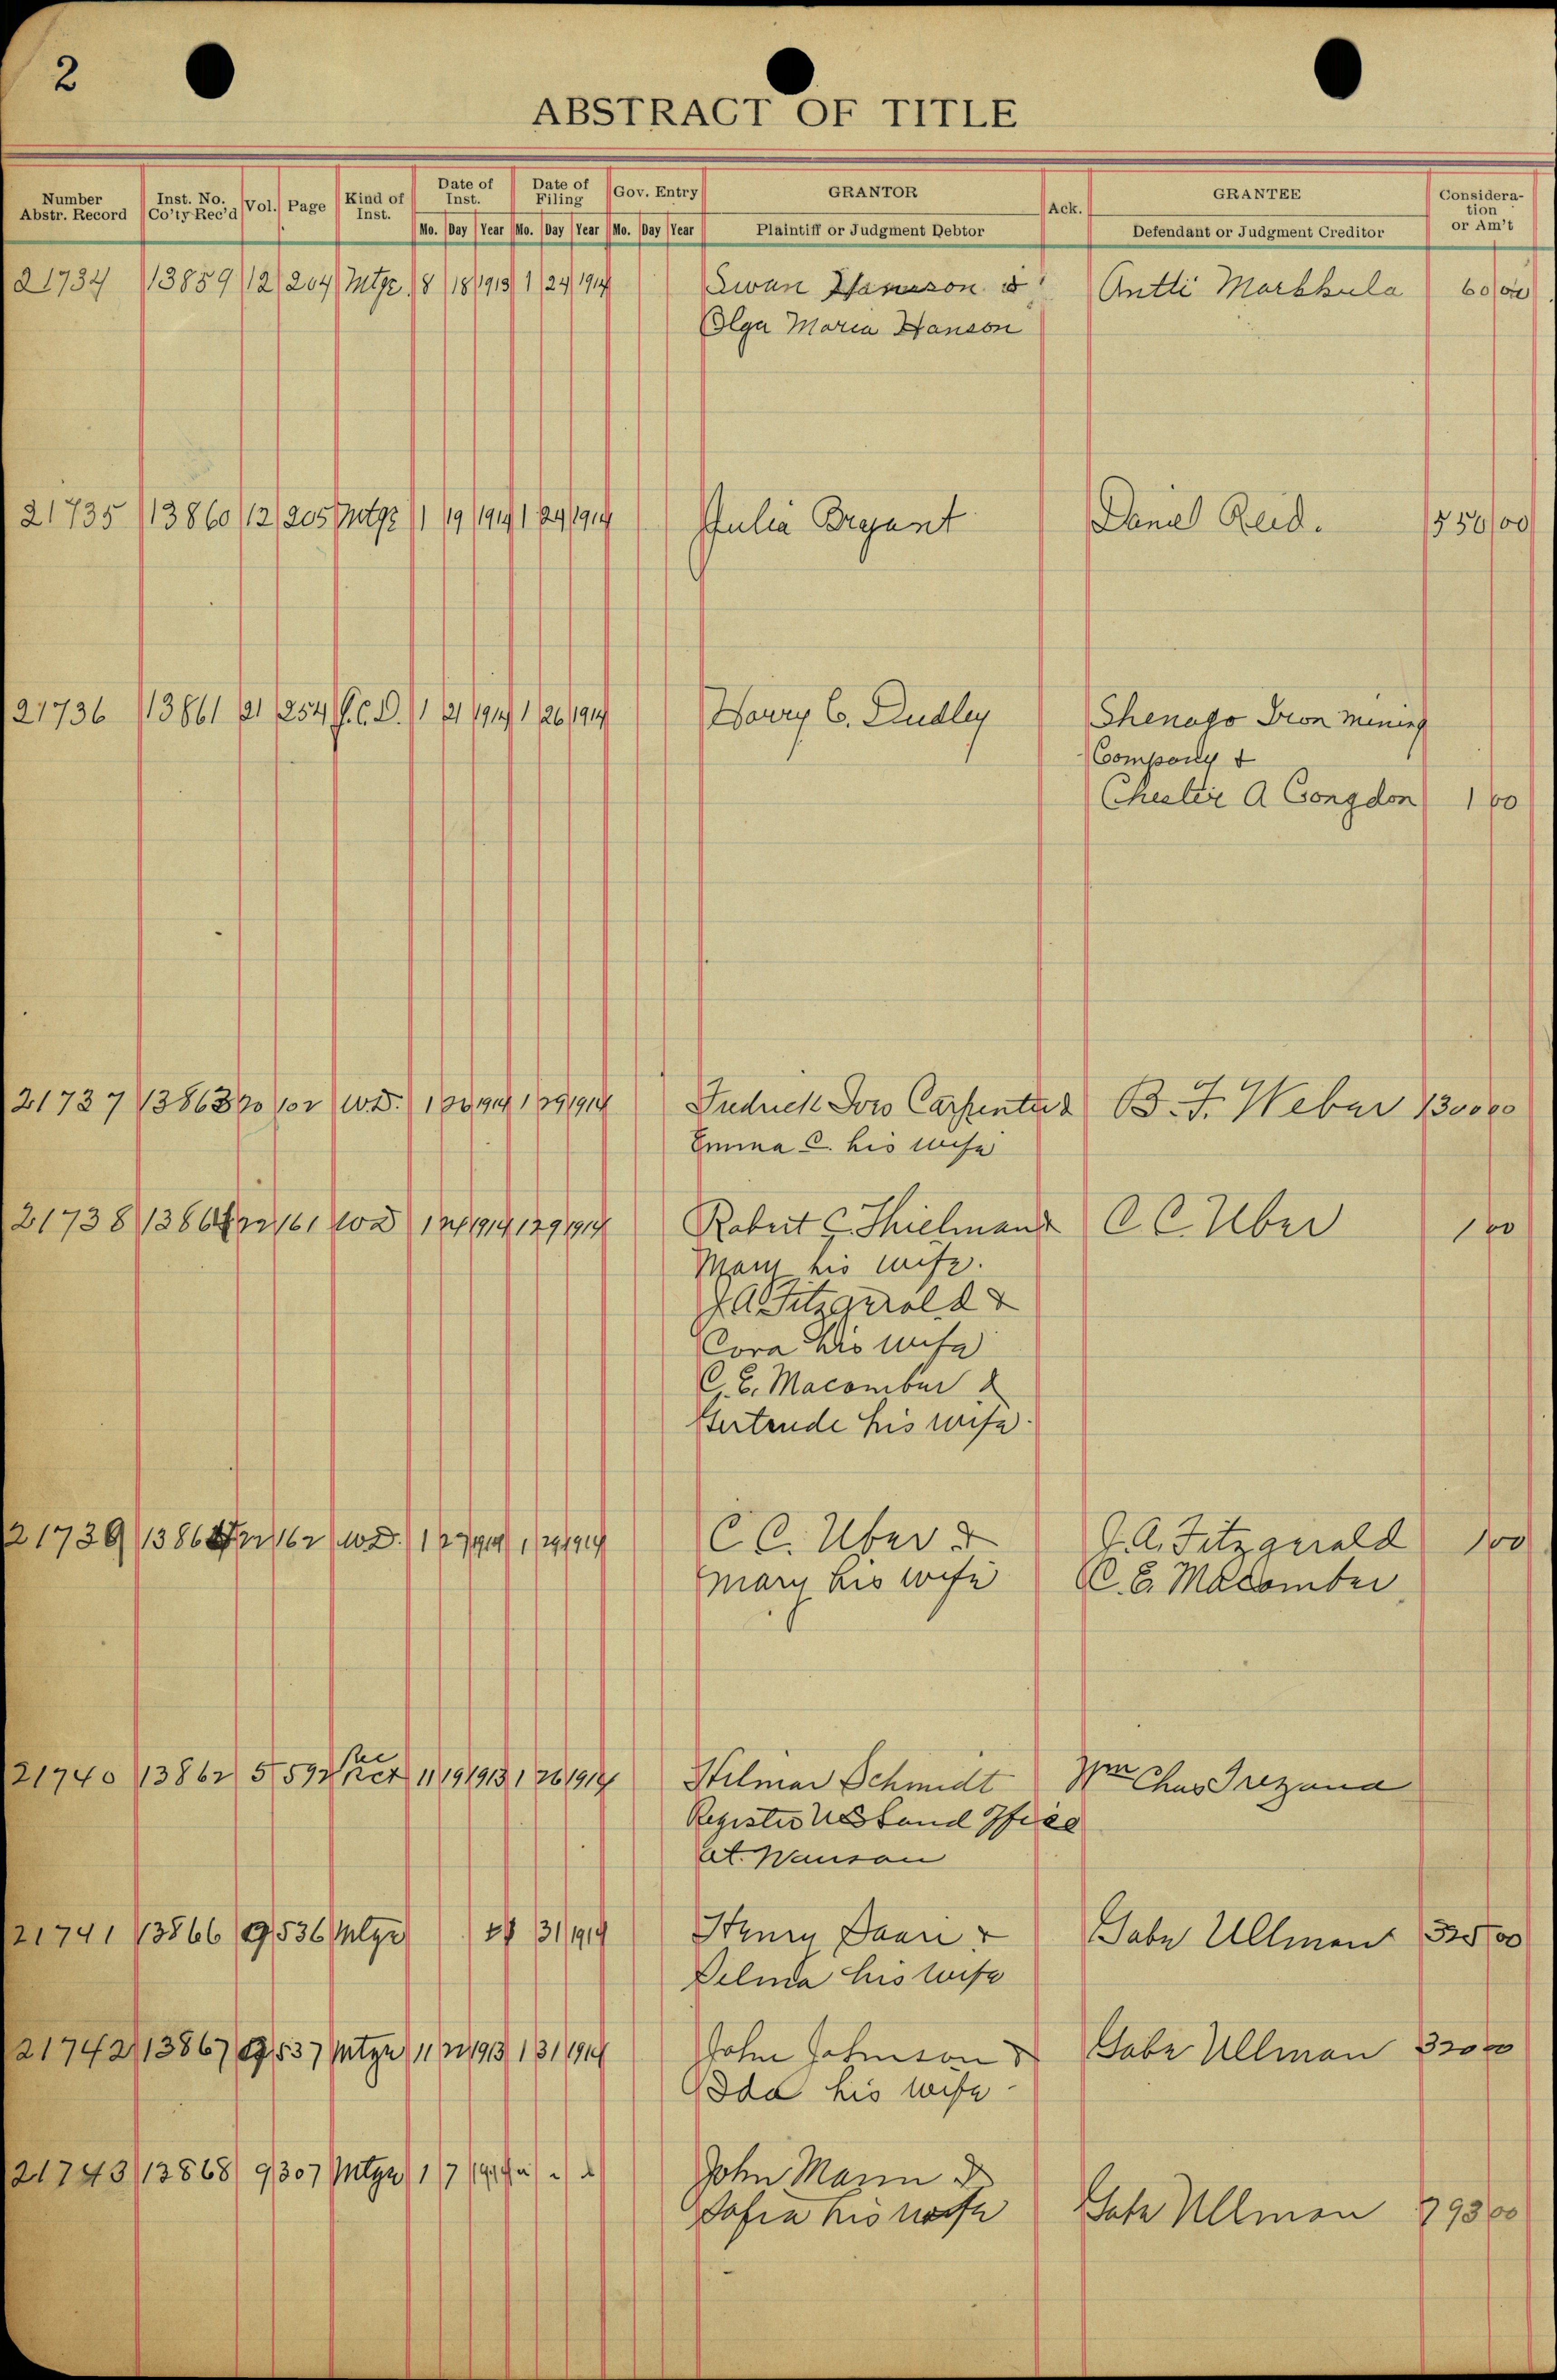 2
ABSTRACT OF TITLE
Number Abstr. Record Inst. No. Co'ty Rec'd Vol. Page Kind of Inst. Date of Inst. Date of Filing Gov. Entry GRANTOR Ack. GRANTEE Consideration or Am't
Mo. Day Year Mo. Day Year Mo. Day Year Plaintiff or Judgment Debtor Defendant or Judgment Creditor
21734 13859 12 204 Mtge 8 18 1913 1 24 1914 Swan Hanson & Antti Markkula 60 00
Olga Maria Hanson
21735 13860 12 205 Mtge 1 19 1914 1 24 1914 Julia Bryant Daniel Reid. 550 00
21736 13861 21 254 1 21 1914 1 26 1914 Harry C. Dudley Shenago Iron Mining
Company +
Chester A Congdon 1 00
21737 13863 20 102 W.D. 1 1914 1 29 1914 Carpenter & B. F. Weber 1300 00
Emma C. his wife
21738 1386 22 161 WD 1 1914 1 29 1914 Robert C. Thielman & C C. Uber 1 00
Mary his wife.
J A Fitzgerald &
Cora his wife
C. E. Macomber &
Gertrude his wife.
21739 1386 22 162 WD. 1 27 1914 1 29 1914 C C. Uber & J. A. Fitzgerald 1 00
Mary his wife C. E. Macomber
21740 13862 5 592 Rec Rct 11 19 1913 1 26 1914 Hilmar Schmidt Wm Chas Trezona
Register US Land Office
at. Wausau
21741 13866 9 536 Mtge 31 1914 Henry Saari & Gabe Ullman 325 00
Selma his wife
21742 13867 9 537 Mtge 11 22 1913 1 31 1914 John Johnson & Gabe Ullman 320 00
Ida his wife
21743 13868 9 307 Mtge 1 7 John Mann &
Sofia his wife Gabe Ullman 793 00